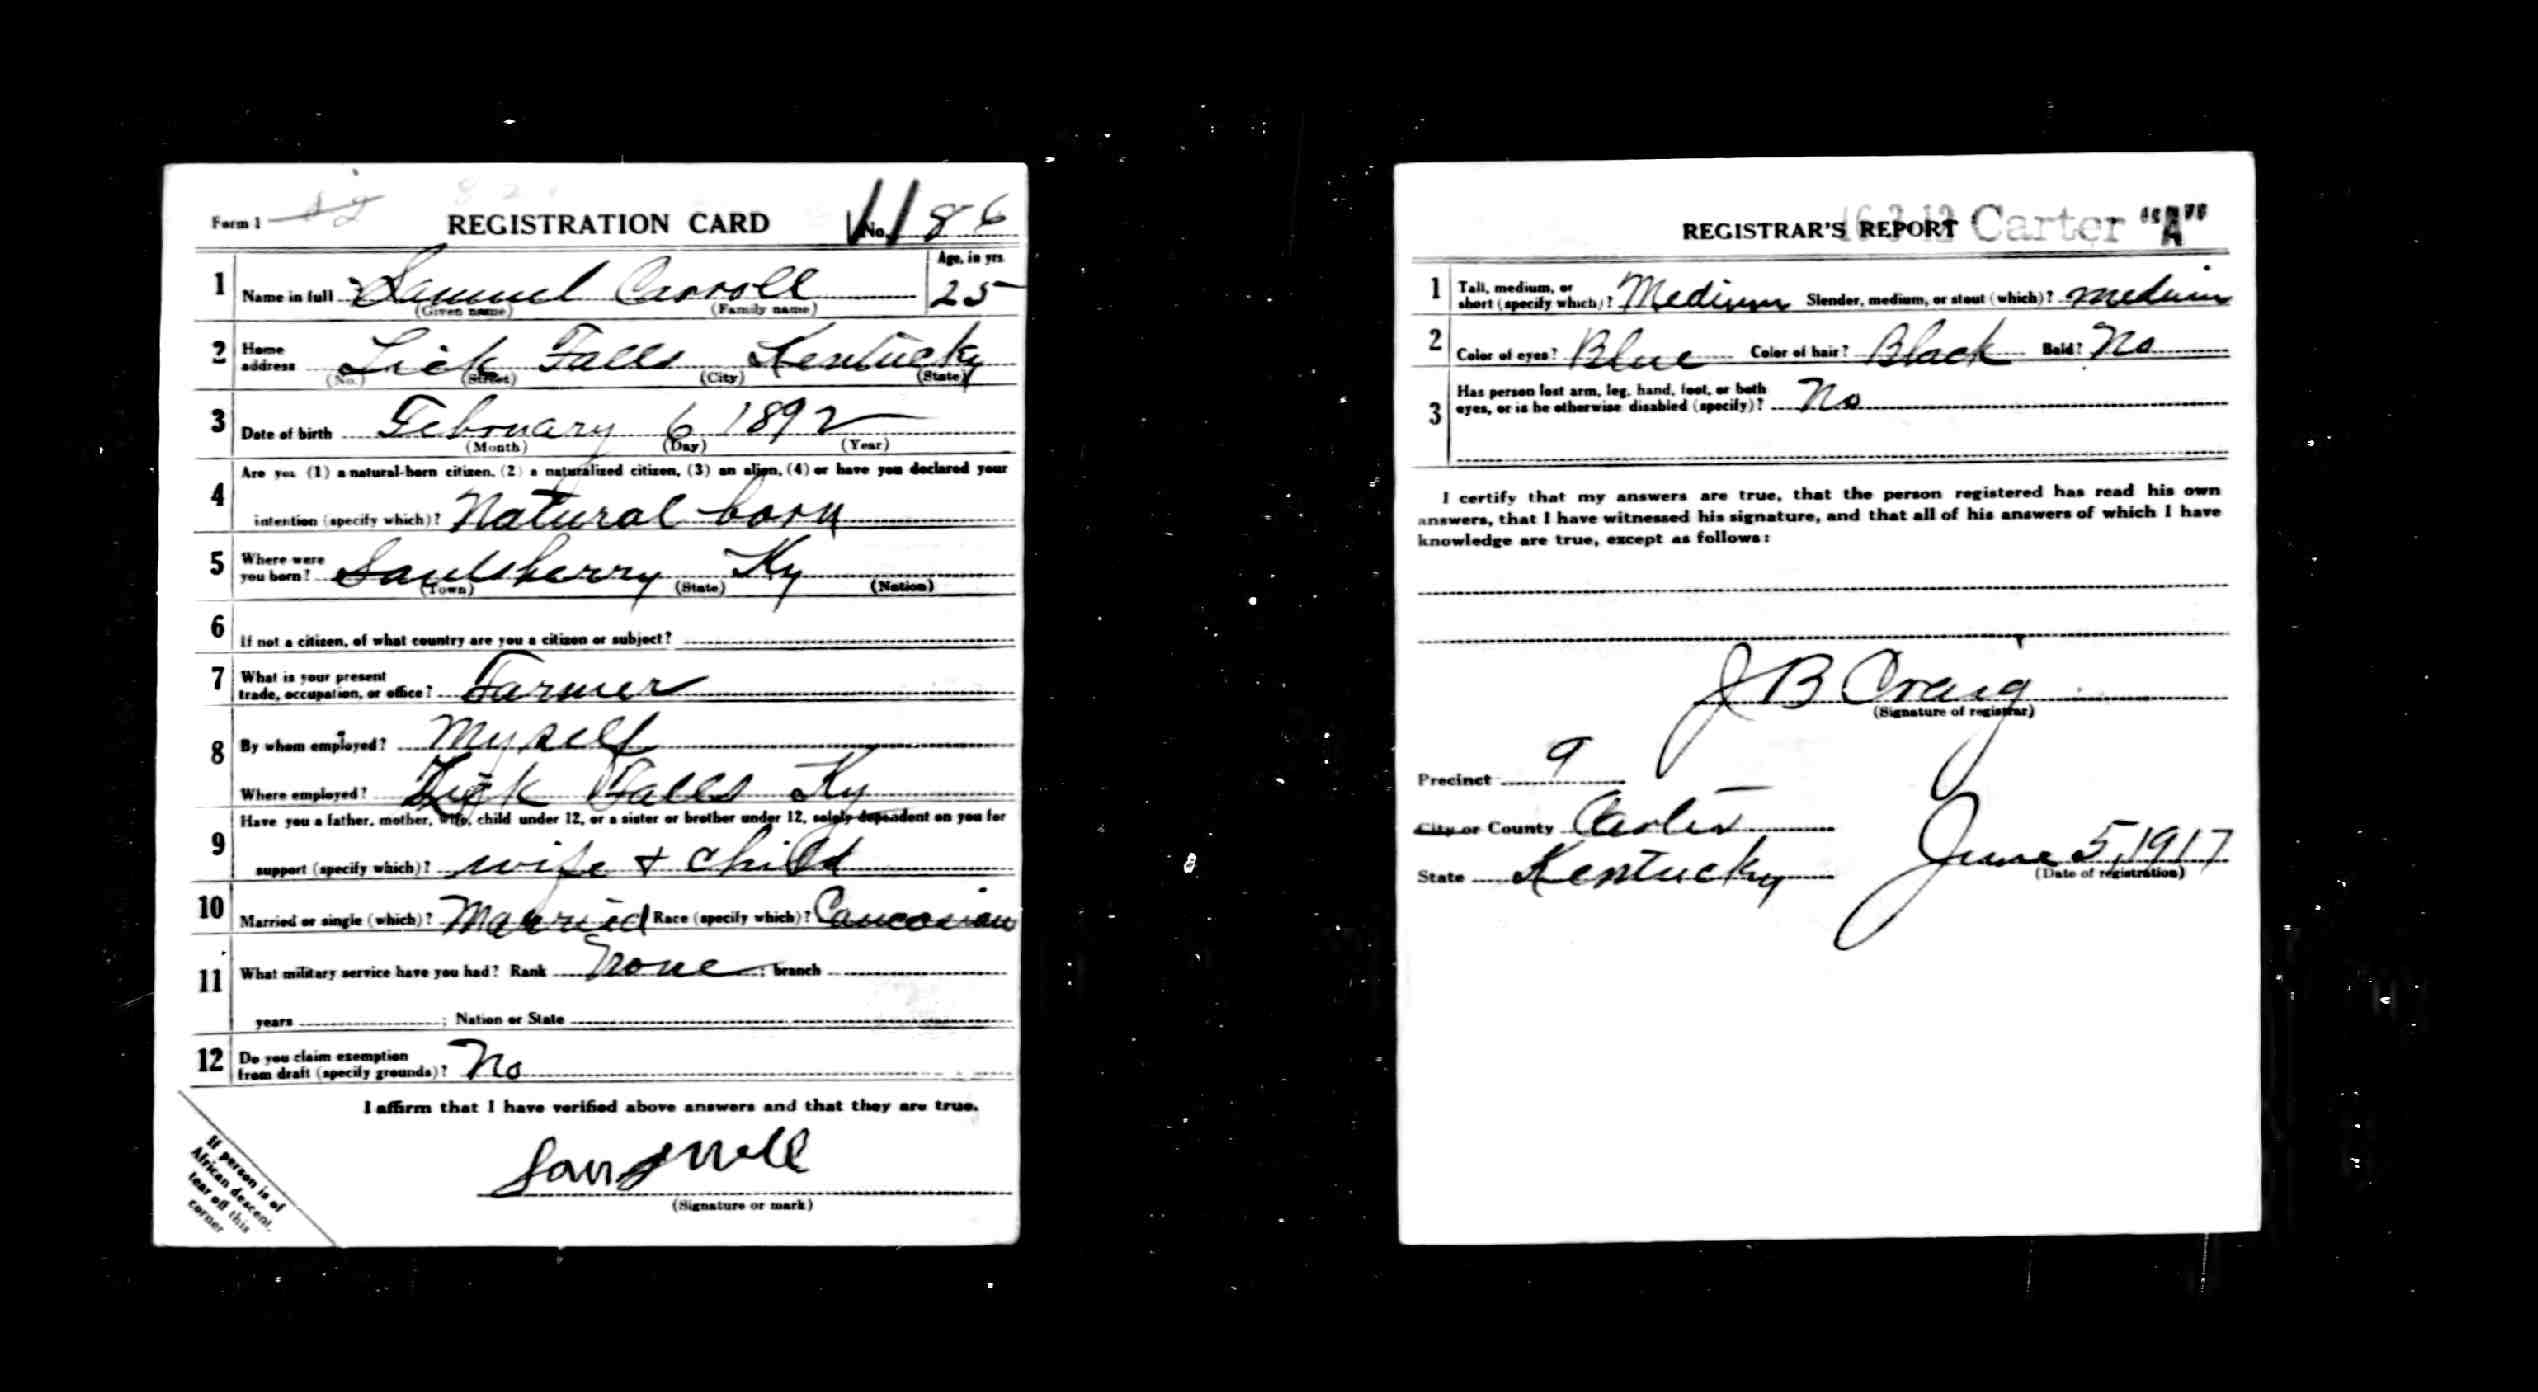 Form 1
REGISTRATION CARD
No. 86
1 Name in full Samuel Carroll
(Given name) (Family name)
Age, in yrs. 25
2 Home address Lick Falls Kentucky
(No.) (Street) (City) (State)
3 Date of birth February 6 1892
(Month) (Day) (Year)
4 Are you (1) a natural-born citizen, (2) a naturalized citizen, (3) an alien, (4) or have you declared your
intention (specify which)? Natural born
5 Where were you born? Saulsberry Ky
(Town) (State) (Nation)
6 If not a citizen, of what country are you a citizen or subject?
7 What is your present
trade, occupation, or office? Farmer
8 By whom employed? Myself
Where employed? Lick Falls Ky
9 Have you a father, mother, wife, child under 12, or a sister or brother under 12, solely dependent on you for
support (specify which)? wife + child
10 Married or single (which)? Married Race (specify which)? Caucasian
11 What military service have you had? Rank None ; branch
years ; Nation or State
12 Do you claim exemption
from draft (specify grounds)? No
I affirm that I have verified above answers and that they are true.
(Signature or mark)
If person is of
African descent,
tear off this
corner
REGISTRAR'S REPORT Carter "A"
1 Tall, medium, or
short (specify which)? Medium Slender, medium, or stout (which)? medium
2 Color of eyes? Blue Color of hair? Black Bald? No
3 Has person lost arm, leg, hand, foot, or both
eyes, or is he otherwise disabled (specify)? No
I certify that my answers are true, that the person registered has read his own
answers, that I have witnessed his signature, and that all of his answers of which I have
knowledge are true, except as follows:
J B Craig
(Signature of registrar)
Precinct 9
City or County Carter
State Kentucky
June 5, 1917
(Date of registration)